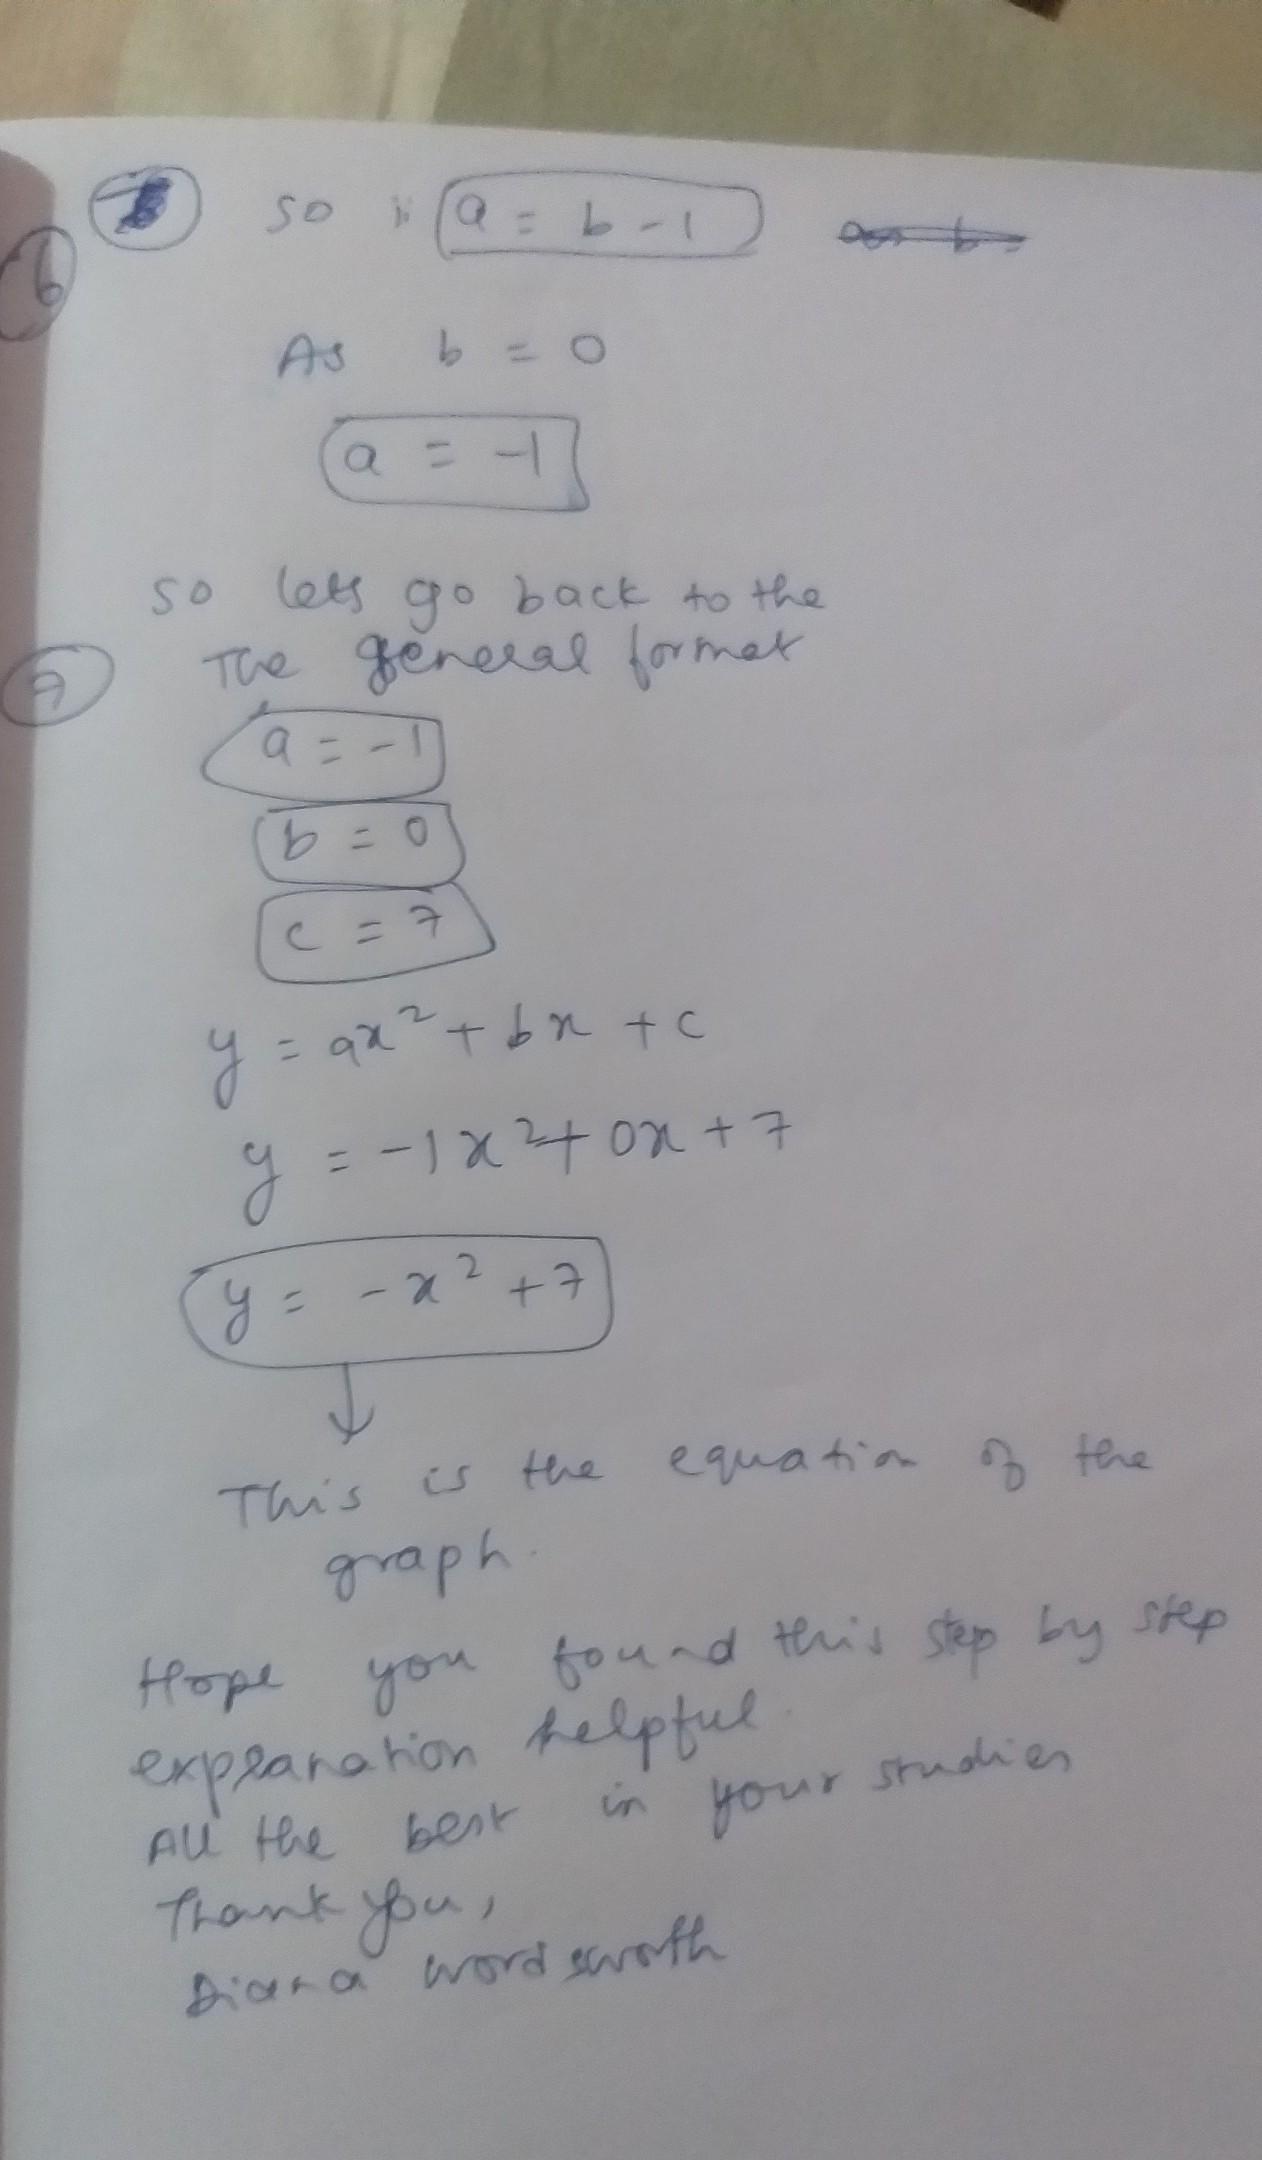 6 so a = b - 1
As b = 0
a = -1
so lets go back to the
7 The general format
a = -1
b = 0
c = 7
y = ax² + bx + c
y = -1x² + 0x + 7
y = -x² + 7
This is the equation of the
graph.
Hope you found this step by step
explanation helpful.
All the best in your studies
Thank you,
Diana wordsworth